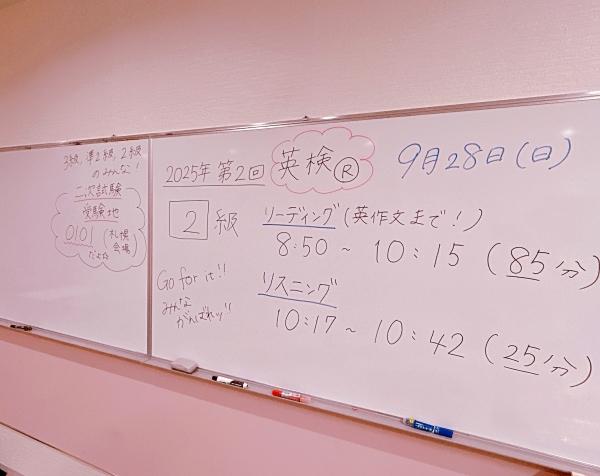 3級、準2級、2級
のみんな！
二次試験
受験地
0101（札幌
会場）
だよ☆
2025年 第2回 英検® 9月28日（日）
2級
リーディング（英作文まで！）
8:50 ～ 10:15（85分）
Go for it!!
みんな
がんばれッ!!
リスニング
10:17 ～ 10:42（25分）